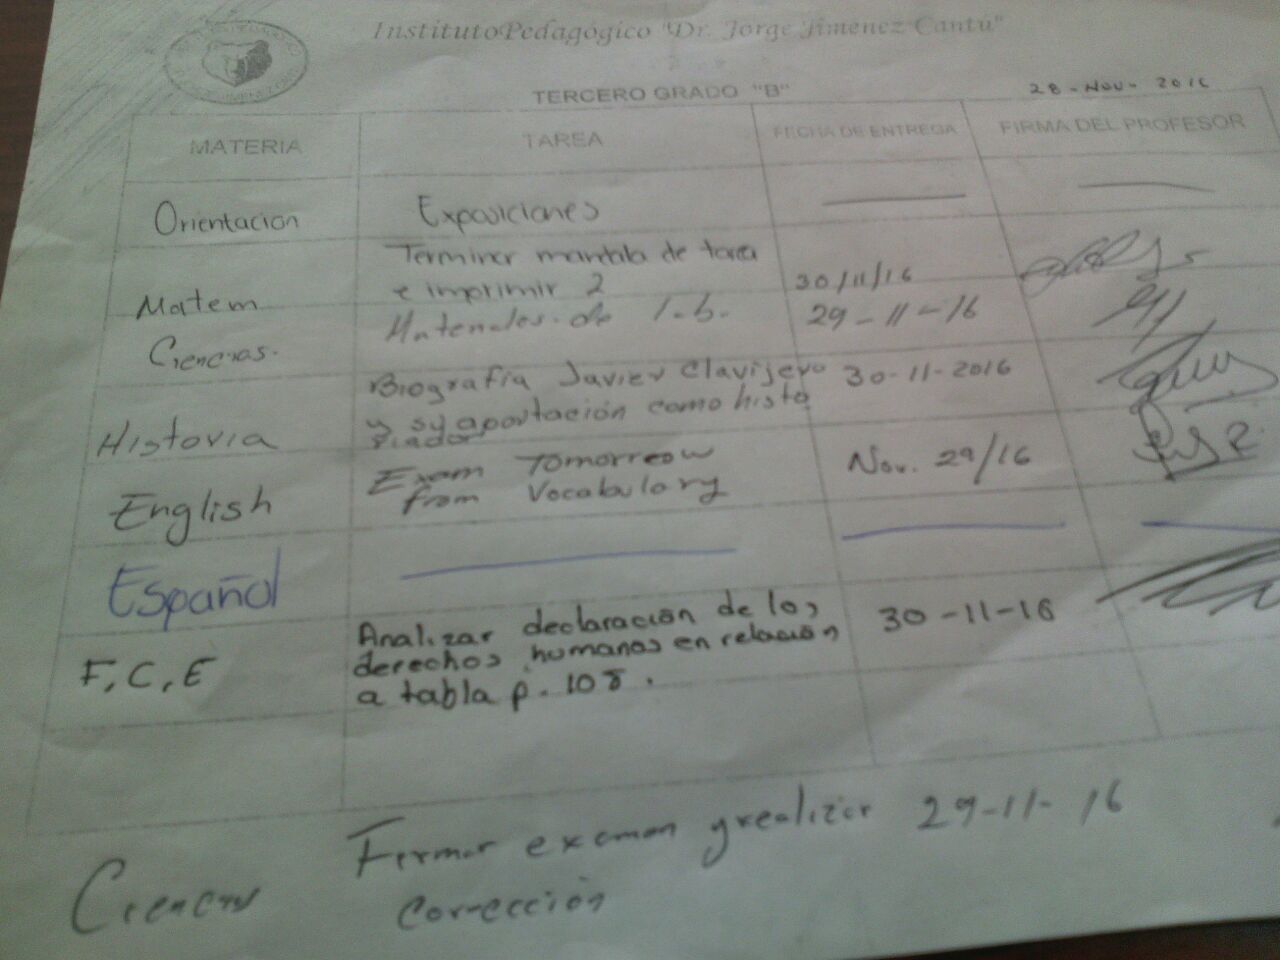 Instituto Pedagógico "Dr. Jorge Jimenez Cantú"
TERCERO GRADO "B"
28-NOV-2016
MATERIA TAREA FECHA DE ENTREGA FIRMA DEL PROFESOR
Orientacion Exposiciones
Matem Terminar mantala de tarea
e imprimir 2 30/11/16
Ciencias. Materiales de l.b. 29-11-16
Historia Biografía Javier Clavijero 30-11-2016
y su aportación como histo
riador
English Exam Tomorrow Nov. 29/16
from Vocabulary
Español
F,C,E Analizar declaración de los 30-11-16
derechos humanos en relación
a tabla p. 108.
Ciencias Firmar examen y realizar 29-11-16
corrección